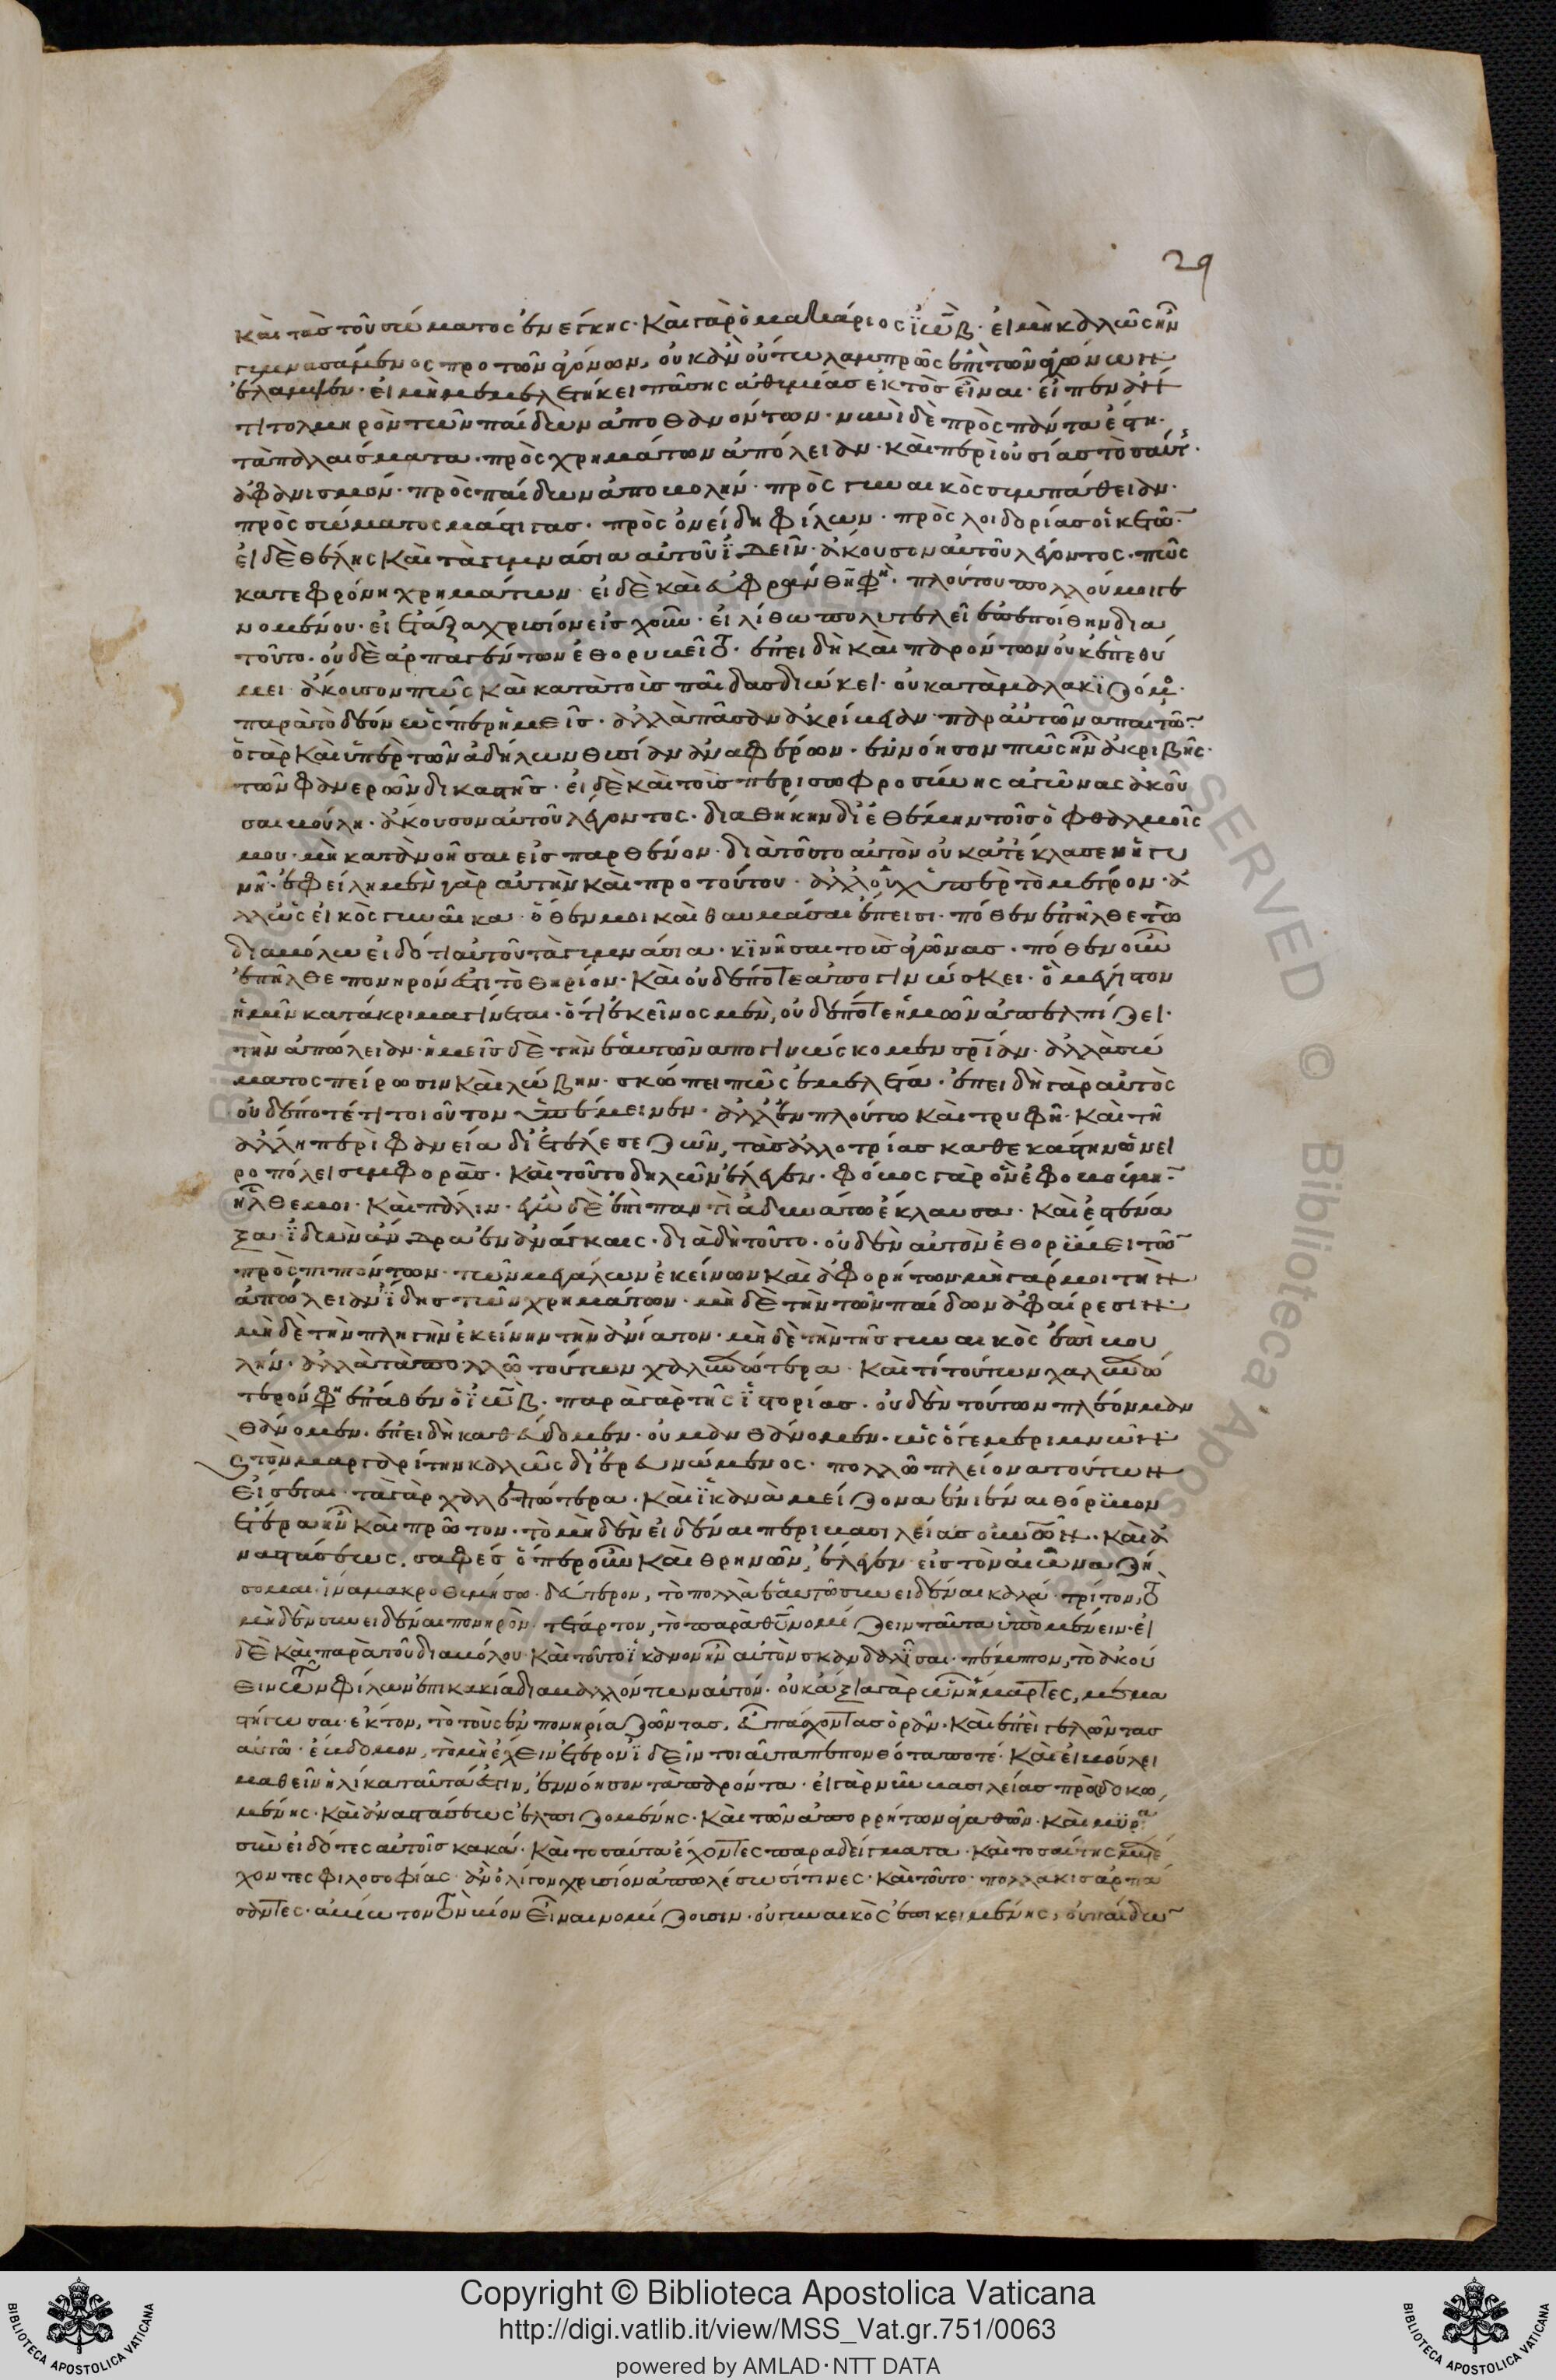 29
καὶ τὰς τοῦ σώματος ἐνέγκῃς· καὶ γὰρ ὁ μακάριος ἰὼβ· εἰ μὴ καλῶς ἦν
γυμνασάμενος προ τῶν ἀγώνων, οὐκ ἂν οὕτω λαμπρῶς ἐπι τῶν ἀγώνων
ἔλαμψεν· εἰ μὴ μεμελετήκει πάσης ἀθυμίας ἐκτὸς εἶναι· εἶπεν ἄν
τι τολμηρὸν τῶν παίδων ἀποθανόντων· νυνὶ δὲ πρὸς πάντα ἔστη·
τὰ παλαίσματα· πρὸς χρημάτων ἀπόλειαν· καὶ περιουσίας τοσαύτ
ἀφανισμόν· πρὸς παίδων ἀποβολήν· πρὸς γυναικὸς συμπάθειαν·
πρὸς σώματος μάστιγας· πρὸς ὀνείδη φίλων· πρὸς λοιδορίας οἰκετῶ
εἰ δὲ θέλῃς καὶ τὰ γυμνάσια αὐτοῦ ἰδεῖν· ἄκουσον αὐτοῦ λέγοντος· πῶς
κατεφρόνη χρημάτων· εἰ δὲ καὶ εὐφράνθην φη· πλούτου πολλοῦ μοι γε
νομένου· εἰ ἔταξα χρυσίον εἰς χοῦν· εἰ λίθω πολυτελεῖ ἐπεποίθην δια
τοῦτο· οὐδὲ ἁρπαγέντων ἐθορυβεῖτο· ἐπειδὴ καὶ παρόντων οὐκ ἐπεθύ
μει· ἄκουσον πῶς καὶ κατὰ τοὺς παῖδας διώκει· οὐ κατὰ μαλακιζόμ
παρὰ τὸ δέον ὡς περ ἡμεῖς· ἀλλὰ πᾶσαν ἀκρίβειαν παρ αὐτῶν ἀπαιτῶ
ὁ γὰρ καὶ ὑπὲρ τῶν ἀδήλων θυσίαν ἀναφέρων· ἐννόησον πῶς ἦν ἀκριβὴς·
τῶν φανερῶν δικαστής· εἰ δὲ καὶ τοὺς περι σωφροσύνης ἀγῶνας ἀκοῦ
σαι βούλη· ἄκουσον αὐτοῦ λέγοντος· διαθήκην διεθέμην τοῖς ὀφθαλμοῖς
μου· μὴ κατανοῆσαι εἰς παρθένον· διὰ τοῦτο αὐτὸν οὐ κατέκλασεν ἡ γυ
νή· ἐφείλη μὲν γὰρ αὐτὴν καὶ προ τούτου· ἀλλ οὐχ ὑπὲρ τὸ μέτρον· ἀ
λλ ὡς εἰκὸς γυναῖκα· ὅθεν μοι καὶ θαυμάσαι ἔπεισι· πόθεν ἐπῆλθε τῶ
διαβόλω εἰδότι αὐτοῦ τὰ γυμνάσια· κινῆσαι τοὺς ἀγῶνας· πόθεν οὖν
ἐπῆλθε πονηρόν ἐστι τὸ θηρίον· καὶ οὐδέποτε ἀπογινώσκει· ὃ μέγιστον
ἡμῖν κατάκριμα γίνεται· ὅτι ἐκεῖνος μὲν, οὐδέποτε ἡμῶν ἀπελπίζει·
τὴν ἀπώλειαν· ἡμεῖς δὲ τὴν ἑαυτῶν ἀπογινώσκομεν σρίαν· ἀλλὰ σώ
ματος πείρωσιν καὶ λώβην· σκόπει πῶς ἐμελέτα· ἐπειδὴ γὰρ αὐτὸς
οὐδέποτέ τι τοιοῦτον ὑπέμεινεν· ἀλλ ἐν πλούτω καὶ τρυφῆ· καὶ τῆ
ἄλλη περιφανεία διετέλεσε ζῶν, τὰς ἀλλοτρίας καθ εκάστην ὠνει
ροπόλει συμφορὰς· καὶ τοῦτο δηλῶν ἔλεγεν· φόβος γὰρ ὃν ἐφοβούμην
ἦλθε μοι· καὶ πάλιν· ἐγὼ δὲ ἐπὶ παντὶ ἀδυνάτω ἔκλαυσα· καὶ ἐστένα
ξα ἰδὼν ἄνδρα ἐν ἀνάγκαις· διὰ δὴ τοῦτο· οὐδὲν αὐτὸν ἐθορύβει τῶ
προσπιπτόντων· τῶν μεγάλων ἐκείνων καὶ ἀφορήτων· μὴ γάρ μοι τὴν
ἀπώλειαν ἴδης τῶν χρημάτων· μὴ δὲ τὴν τῶν παίδων ἀφαίρεσιν·
μὴ δὲ τὴν πληγὴν ἐκείνην τὴν ἀνίατον· μὴ δὲ τὴν τῆς γυναικὸς ἐπιβου
λήν· ἀλλὰ τὰ πολλῶ τούτων χαλεπώτερα· καὶ τί τούτων χαλεπώ
τερόν φη ἔπαθεν ὁ ἰὼβ· παρὰ γὰρ τῆς ἱστορίας· οὐδὲν τούτων πλέον μαν
θάνομεν· ἐπειδὴ καθεύδομεν· οὐ μανθάνομεν· ὡς ὅ γε μεριμνῶν
καὶ τὸν μαργαρίτην καλῶς διερευνώμενος· πολλῶ πλείονα τούτων
εἴσεται· τὰ γὰρ χαλεπώτερα· καὶ ἱκανὰ μείζονα ἐνιέναι θόρυβον
ἕτερα ἦν καὶ πρῶτον· τὸ μηδὲν εἰδέναι περι βασιλείας οὐρανῶν· καὶ ἀ
ναστάσεως, σαφές ὅπερ οὖν καὶ θρηνῶν, ἔλεγεν εἰς τὸν αἰῶνα ζή
σομαι ἵνα μακροθυμήσω· δεύτερον, τὸ πολλὰ ἑαυτῶ συνειδέναι καλά· τρίτον, τὸ
μηδὲν συνειδέναι πονηρὸν· τέταρτον, τὸ παρὰ θεοῦ νομίζειν ταῦτα ὑπομένειν· εἰ
δὲ καὶ παρὰ τοῦ διαβόλου καὶ τοῦτο ἱκανὸν ἦν αὐτὸν σκανδαλίσαι· πέμπτον, τὸ ἀκού
ειν τῶν φίλων ἐπι κακία διαβαλλόντων αὐτόν· οὐκ ἄξια γὰρ ὧν ἡμάρτες, μεμα
στίγωσαι· ἕκτον, τὸ τοὺς ἐν πονηρία ζῶντας, εὐπαθοῦντας ὁρᾶν· καὶ ἐπεγγελῶντας
αὐτῶ· ἕβδομον, τὸ μὴ ἔχειν ἕτερον ἰδεῖν τοιαῦτα πεπονθότα ποτέ· καὶ εἰ βούλει
μαθεῖν ἡλίκα ταῦτά ἐστιν, ἐννόησον τὰ παρόντα· εἰ γὰρ νῦν βασιλείας προσδοκω
μένης· καὶ ἀναστάσεως ἐλπιζομένης· καὶ τῶν ἀπορρήτων ἀγαθῶν· καὶ μυρία
συνειδότες αὐτοῖς κακά· καὶ τοσαῦτα ἔχοντες παραδείγματα· καὶ τοσαύτης μετέ
χοντες φιλοσοφίας· ἂν ὀλίγον χρυσίον ἀπολέσωσί τινες· καὶ τοῦτο πολλακις ἁρπά
σαντες· ἀβίωτον τὸν βίον εἶναι νομίζουσιν· οὐ γυναικὸς ἐπικειμένης, οὐ παίδω
Copyright © Biblioteca Apostolica Vaticana
http://digi.vatlib.it/view/MSS_Vat.gr.751/0063
powered by AMLAD·NTT DATA
BIBLIOTECA APOSTOLICA VATICANA
BIBLIOTECA APOSTOLICA VATICANA